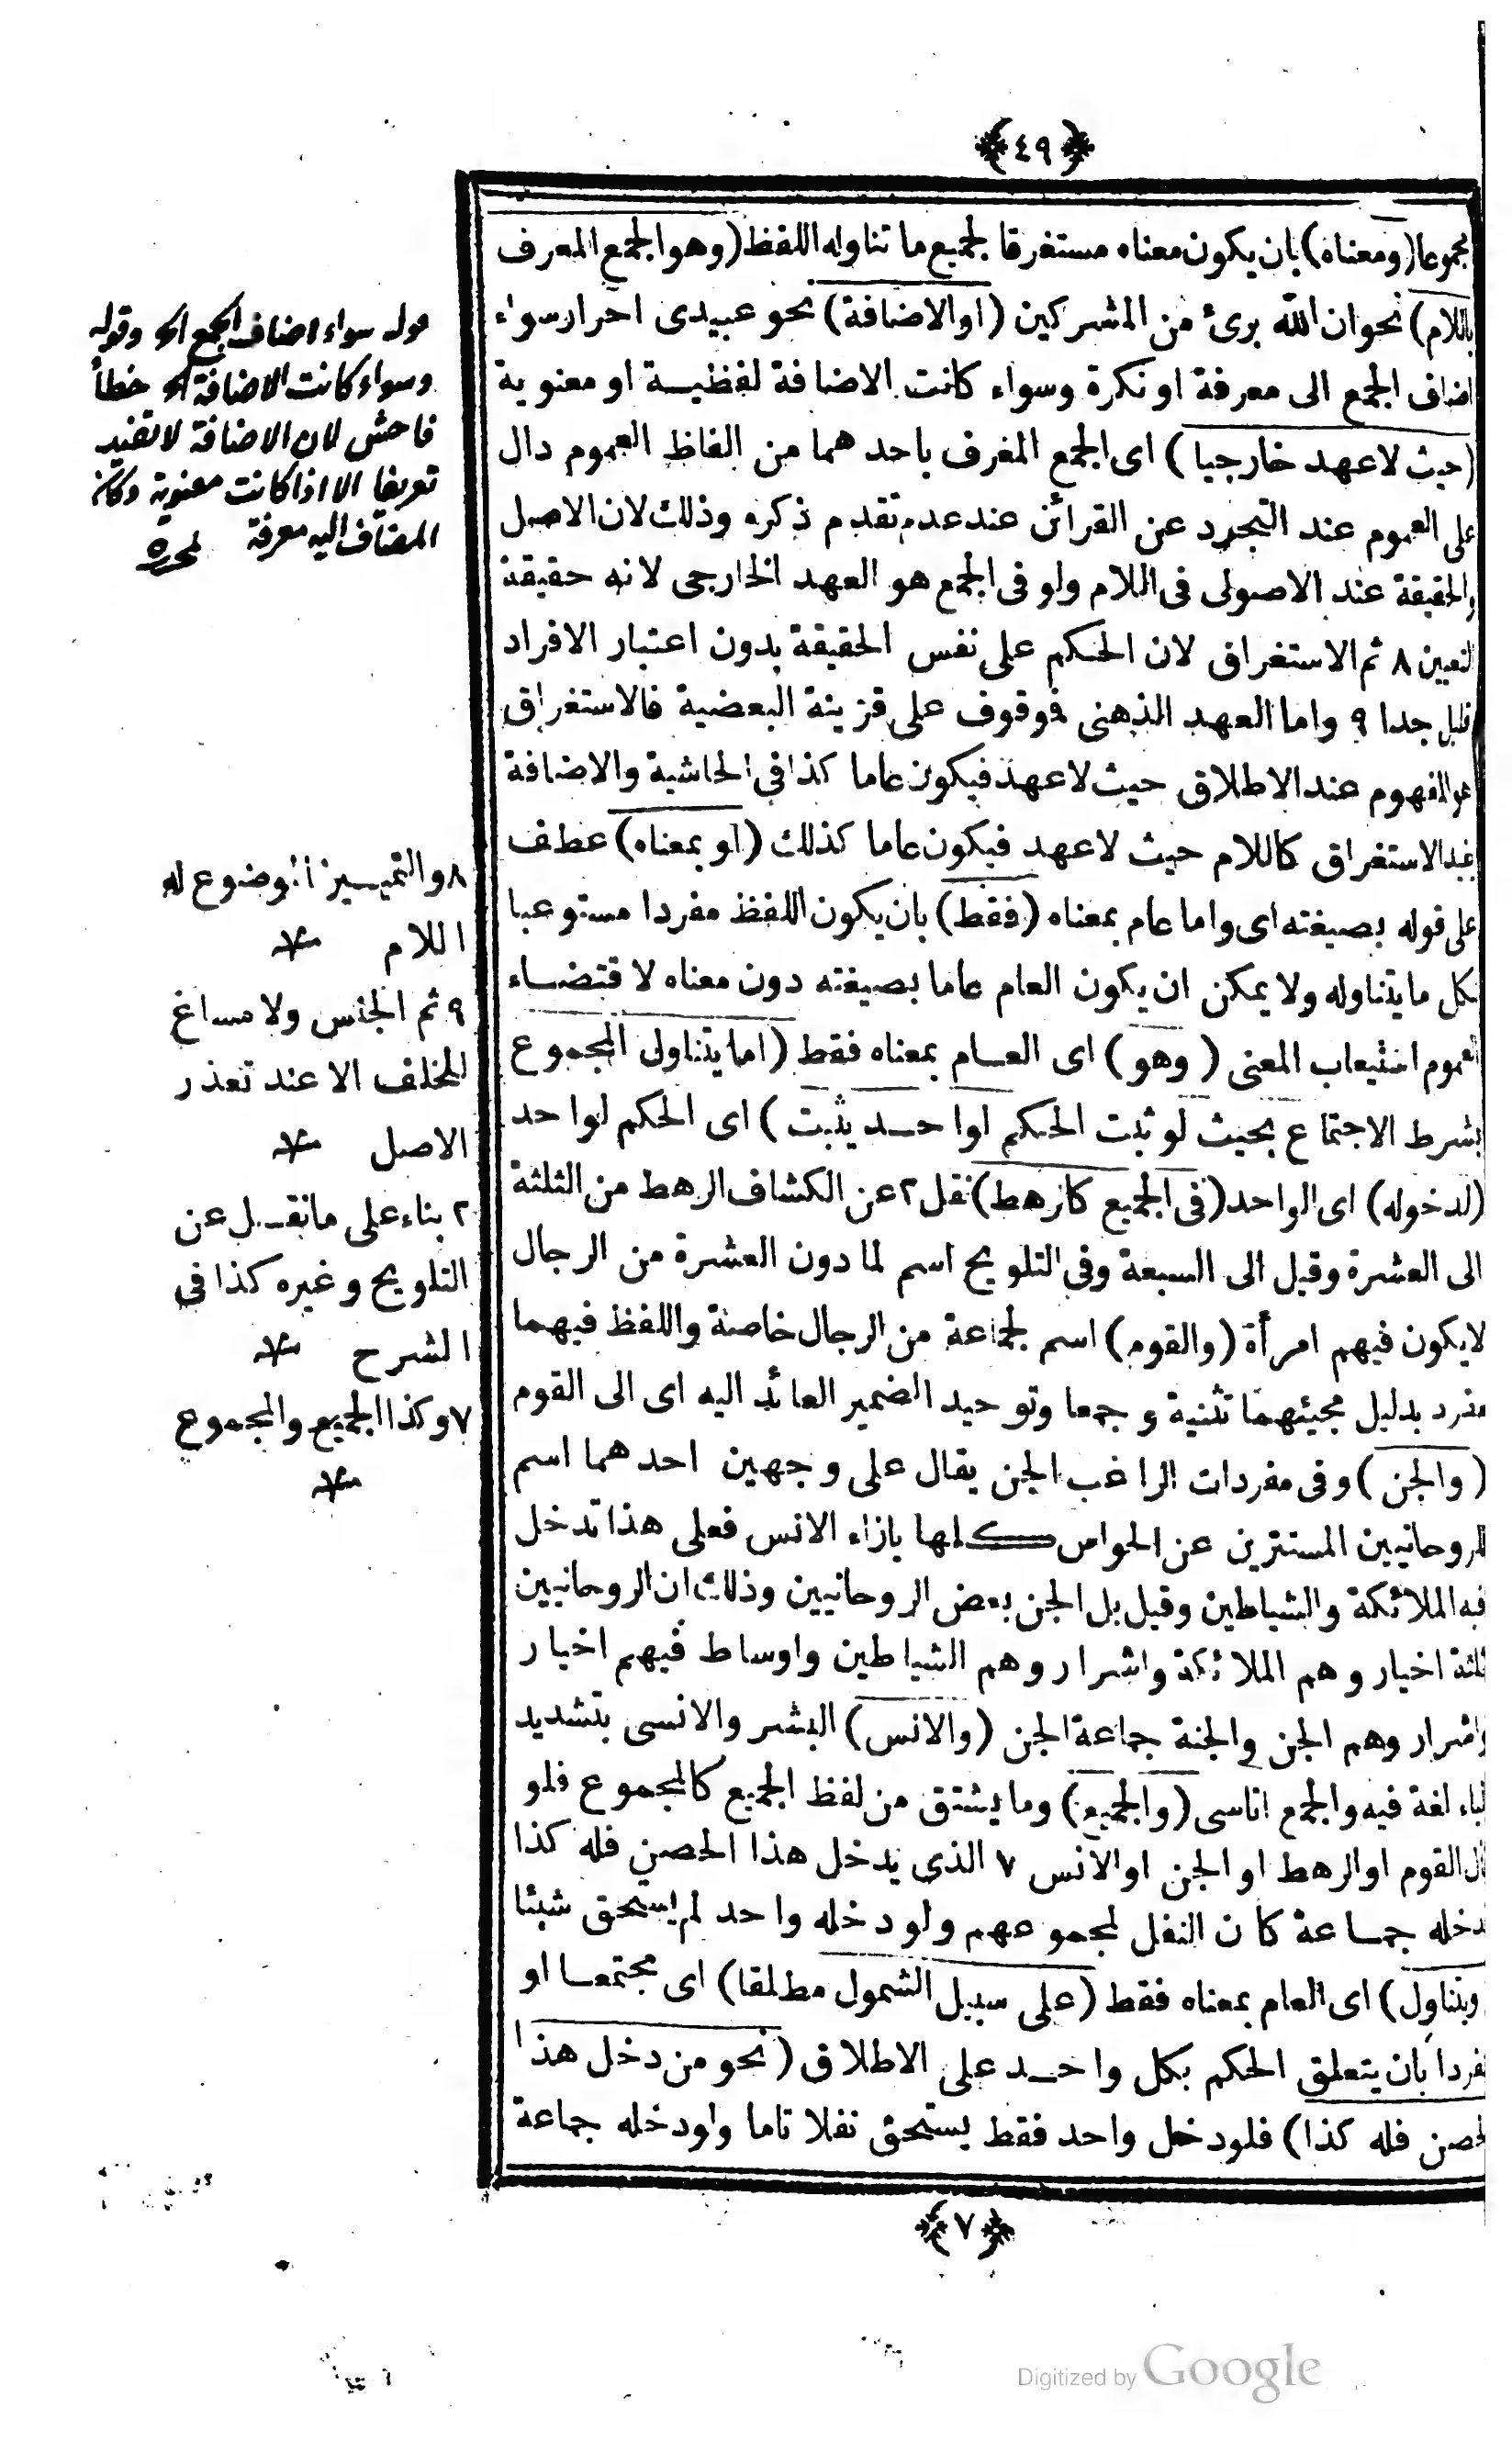 ﴿٤٩﴾
مجموعا (ومعناه) بان يكون معناه مستغرقا لجميع ما تناوله اللفظ (وهو الجمع المعرف
باللام) نحو ان الله برئ من المشركين (او الاضافة) نحو عبيدى احرار سواء
اضاف الجمع الى معرفة او نكرة وسواء كانت الاضافة لفظية او معنوية
(حيث لا عهد خارجيا) اى الجمع المعرف باحدهما من الفاظ العموم دال
على العموم عند التجرد عن القرائن عند عدم تقدم ذكره وذلك لان الاصل
والحقيقة عند الاصولى فى اللام ولو فى الجمع هو العهد الخارجى لانه حقيقة
التعيين ٨ ثم الاستغراق لان الحكم على نفس الحقيقة بدون اعتبار الافراد
قليل جدا ٩ واما العهد الذهنى فوقوف على قرينة البعضية فالاستغراق
هو المفهوم عند الاطلاق حيث لا عهد فيكون عاما كذا فى الحاشية والاضافة
تفيد الاستغراق كاللام حيث لا عهد فيكون عاما كذلك (او بمعناه) عطف
على قوله بصيغته اى واما عام بمعناه (فقط) بان يكون اللفظ مفردا مستوعبا
لكل ما يتناوله ولا يمكن ان يكون العام عاما بصيغته دون معناه لاقتضاء
العموم استيعاب المعنى (وهو) اى العام بمعناه فقط (اما يتناول المجموع
بشرط الاجتماع بحيث لو ثبت الحكم لواحد يثبت) اى الحكم لواحد
(لدخوله) اى الواحد (فى الجميع كالرهط) نقل ٢ عن الكشاف الرهط من الثلثة
الى العشرة وقيل الى السبعة وفى التلويح اسم لما دون العشرة من الرجال
لا يكون فيهم امرأة (والقوم) اسم لجماعة من الرجال خاصة واللفظ فيهما
مفرد بدليل مجيئهما تثنية وجمعا وتوحيد الضمير العائد اليه اى الى القوم
(والجن) وفى مفردات الراغب الجن يقال على وجهين احدهما اسم
للروحانيين المستترين عن الحواس كلها بازاء الانس فعلى هذا تدخل
فيه الملائكة والشياطين وقيل بل الجن بعض الروحانيين وذلك ان الروحانيين
ثلثة اخيار وهم الملائكة واشرار وهم الشياطين واوساط فيهم اخيار
واشرار وهم الجن والجنة جماعة الجن (والانس) البشر والانسى بتشديد
الياء لغة فيه والجمع اناسى (والجميع) وما يشتق من لفظ الجميع كالمجموع فلو
قال القوم او الرهط او الجن او الانس ٧ الذى يدخل هذا الحصن فله كذا
فدخله جماعة كان النفل لمجموعهم ولو دخله واحد لم يستحق شيئا
(ويتناول) اى العام بمعناه فقط (على سبيل الشمول مطلقا) اى مجتمعا او
منفردا بان يتعلق الحكم بكل واحد على الاطلاق (نحو من دخل هذا
الحصن فله كذا) فلو دخل واحد فقط يستحق نفلا تاما ولو دخله جماعة
﴿٧﴾
قوله سواء اضاف الجمع الخ وقوله
وسواء كانت الاضافة الخ خطأ
فاحش لان الاضافة لا تفيد
تعريفا الا اذا كانت معنوية وكان
المضاف اليه معرفة لمحرره
٨ والتمييز الموضوع له
اللام
٩ ثم الجنس ولا مساغ
للخلف الا عند تعذر
الاصل
٢ بناء على ما نقل عن
التلويح وغيره كذا فى
الشرح
٧ وكذا الجميع والمجموع
Digitized by Google